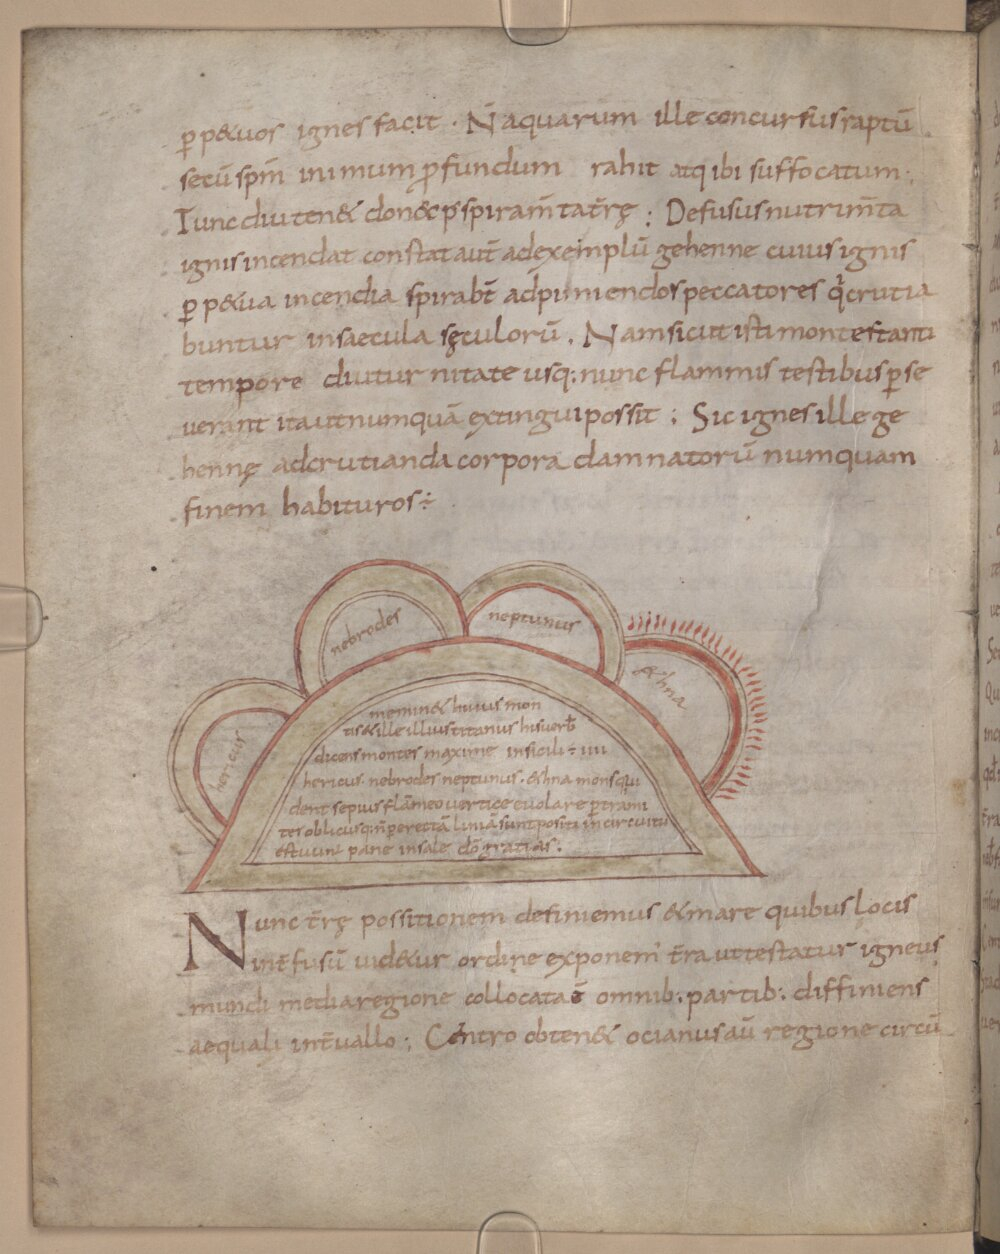 ꝑpetuos ignes facit . Nā aquarum ille concursus raptū
secū spm̄ in imum ꝓfundum rahit atq ibi suffocatum ;
Tunc diu tenet donec ꝑ spiram̄ta tr̄ę ; Defusus nutrim̄ta
ignis incendat constat aut̄ ad exemplū gehenne cuius ignis
ꝑpetua incendia spirabt̄ ad puniendos peccatores q̇ crutia
buntur in saecula sęculorū . Nam sicut isti montes tanti
tempore diuturnitate usq: nunc flammis testibus ꝑse
uerant ita ut numquā extingui possit ; Sic ignes ille ge
hennę ad crutianda corpora damnatorū numquam
finem habituros
nebrodes
neptunus
ethna
hericus
meminet huius mon
tis et ille illius titanus his uerb̄
dicens montes maxime in sicili ÷ iiii
hericus nebrodes neptunus . ethna mons qui
dem̄ sepius flāmeo uertice euolare ꝑ trami
tes oblicus qm̄ ꝑerectā liniā sunt positi in circuitu
pane in sale dō gratias :
Nunc tr̄ę possitionem definiemus et mare quibus locis
int̄fusū uidetur ordine exponem' tr̄ra ut testatur igneus
mundi media regione collocata ē omnib: partib: diffiniens
aequali int̄uallo ; Centro obtenet ocianus aū regione circū